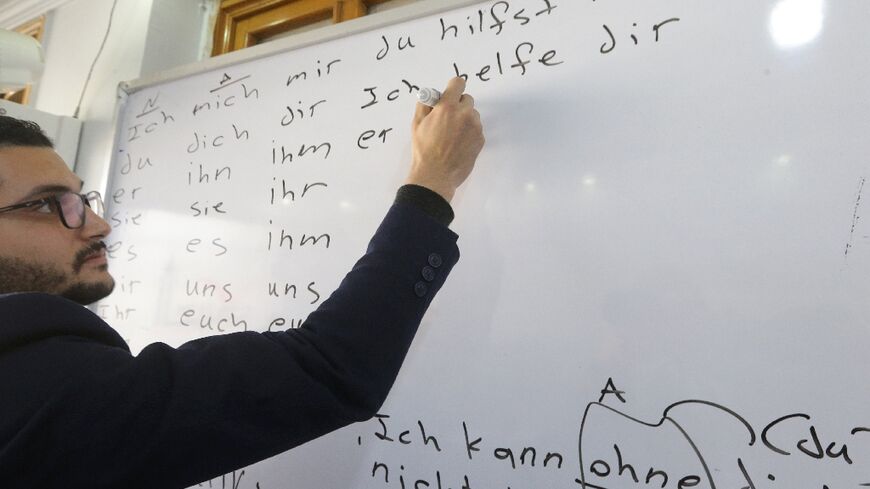 N A
Ich mich mir du hilfst
du dich dir Ich helfe dir
er ihn ihm er
sie sie ihr
es es ihm
uns uns
Ihr euch
A
Ich kann ohne (du
nicht